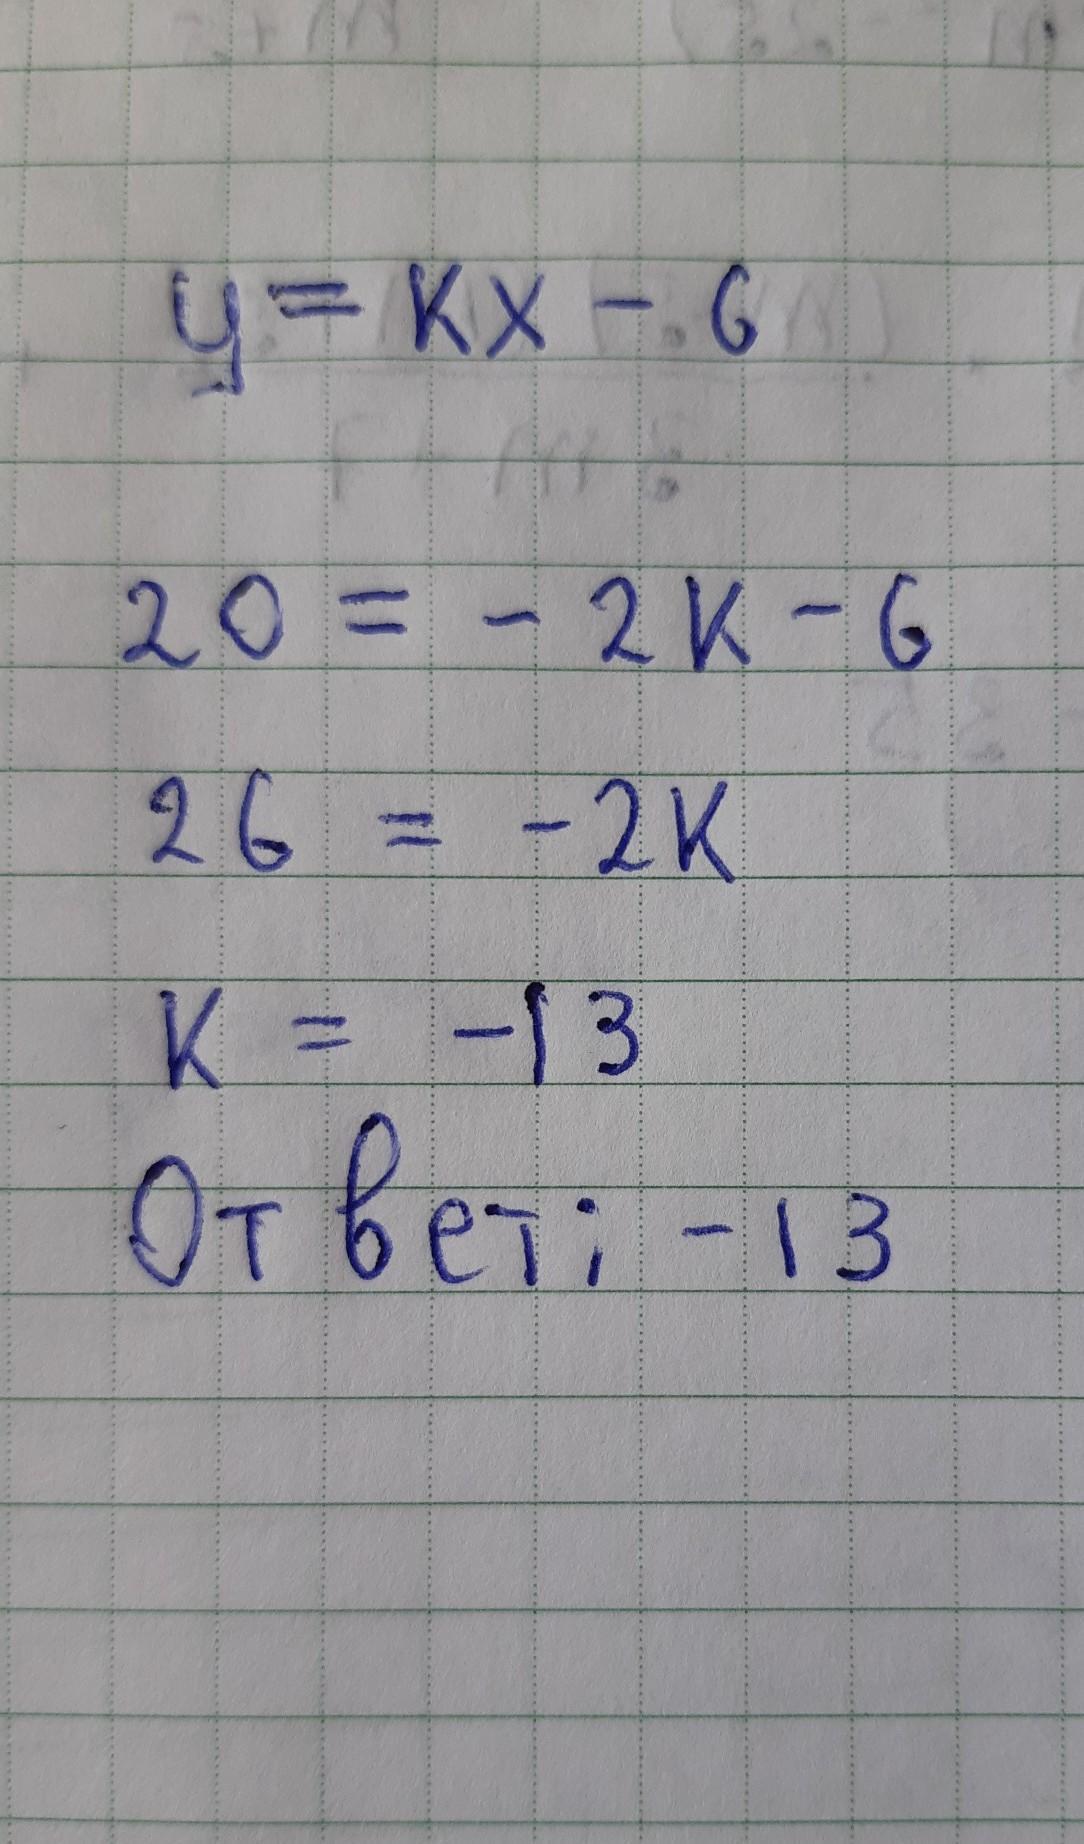 y = kx - 6
20 = - 2k - 6
26 = -2k
k = -13
Ответ: -13